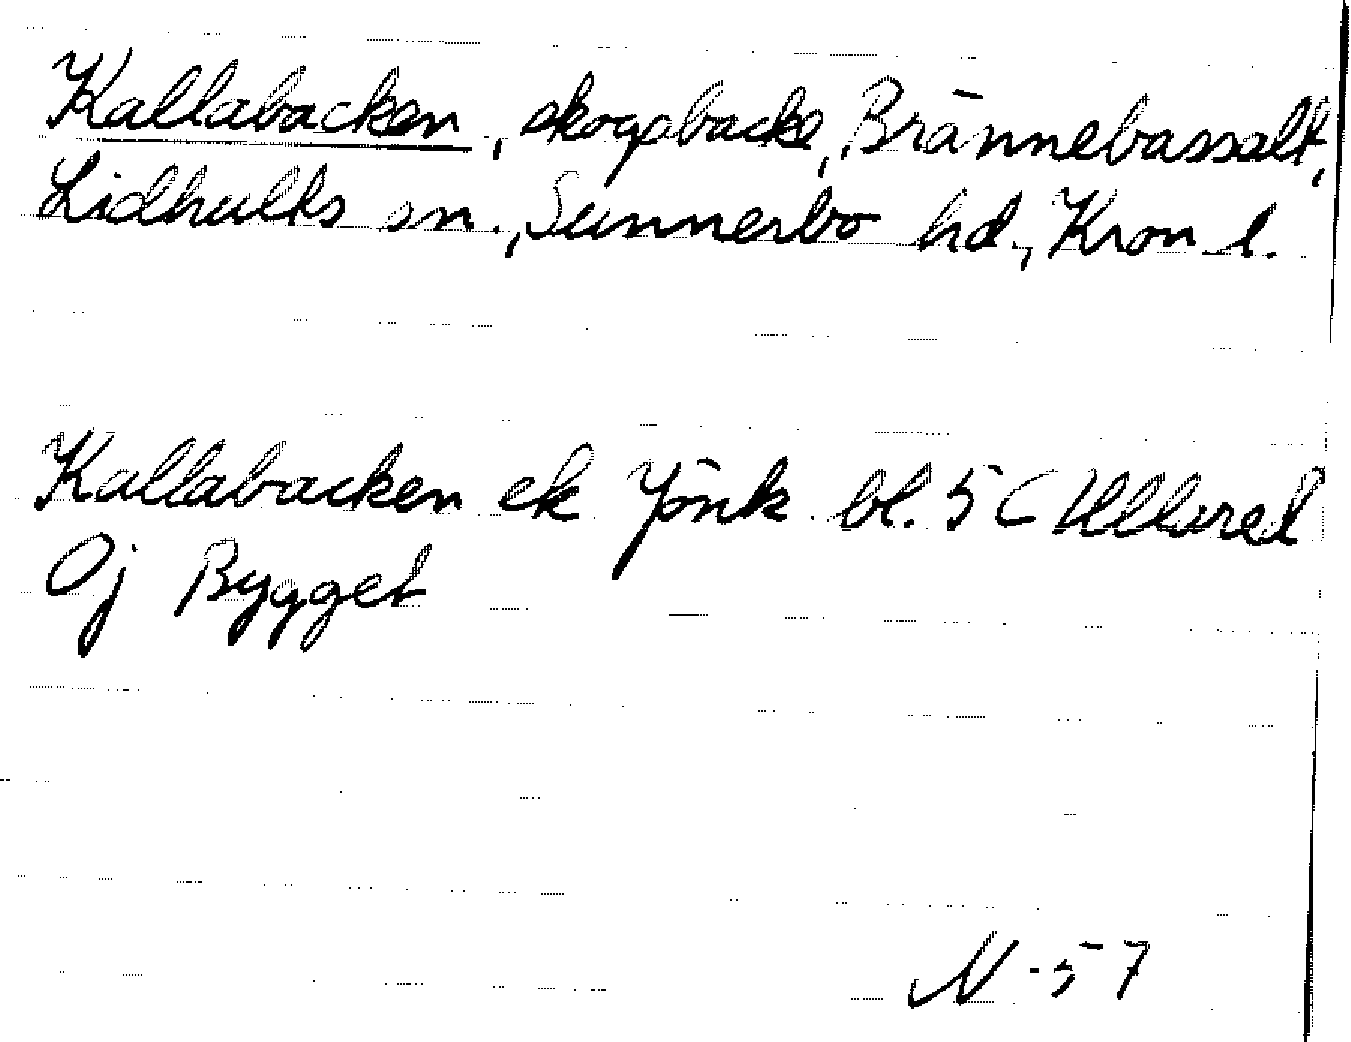 Kallabacken, skogsbacke, Brännebassalt,
Lidhults sn., Sunnerbo hd., Kron l.
Kallabacken ek Jönk bl. 5 C Ullared
Oj Bygget
N-57